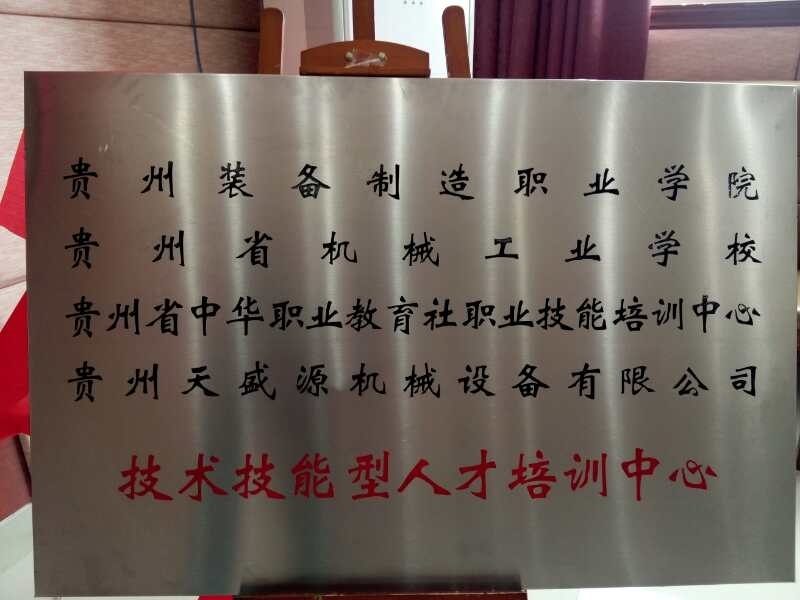 贵州装备制造职业学院
贵州省机械工业学校
贵州省中华职业教育社职业技能培训中心
贵州天盛源机械设备有限公司
技术技能型人才培训中心